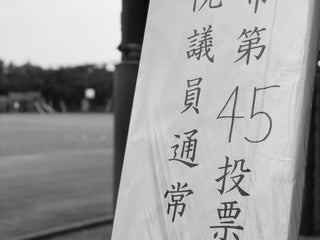 第45投票
議員通常